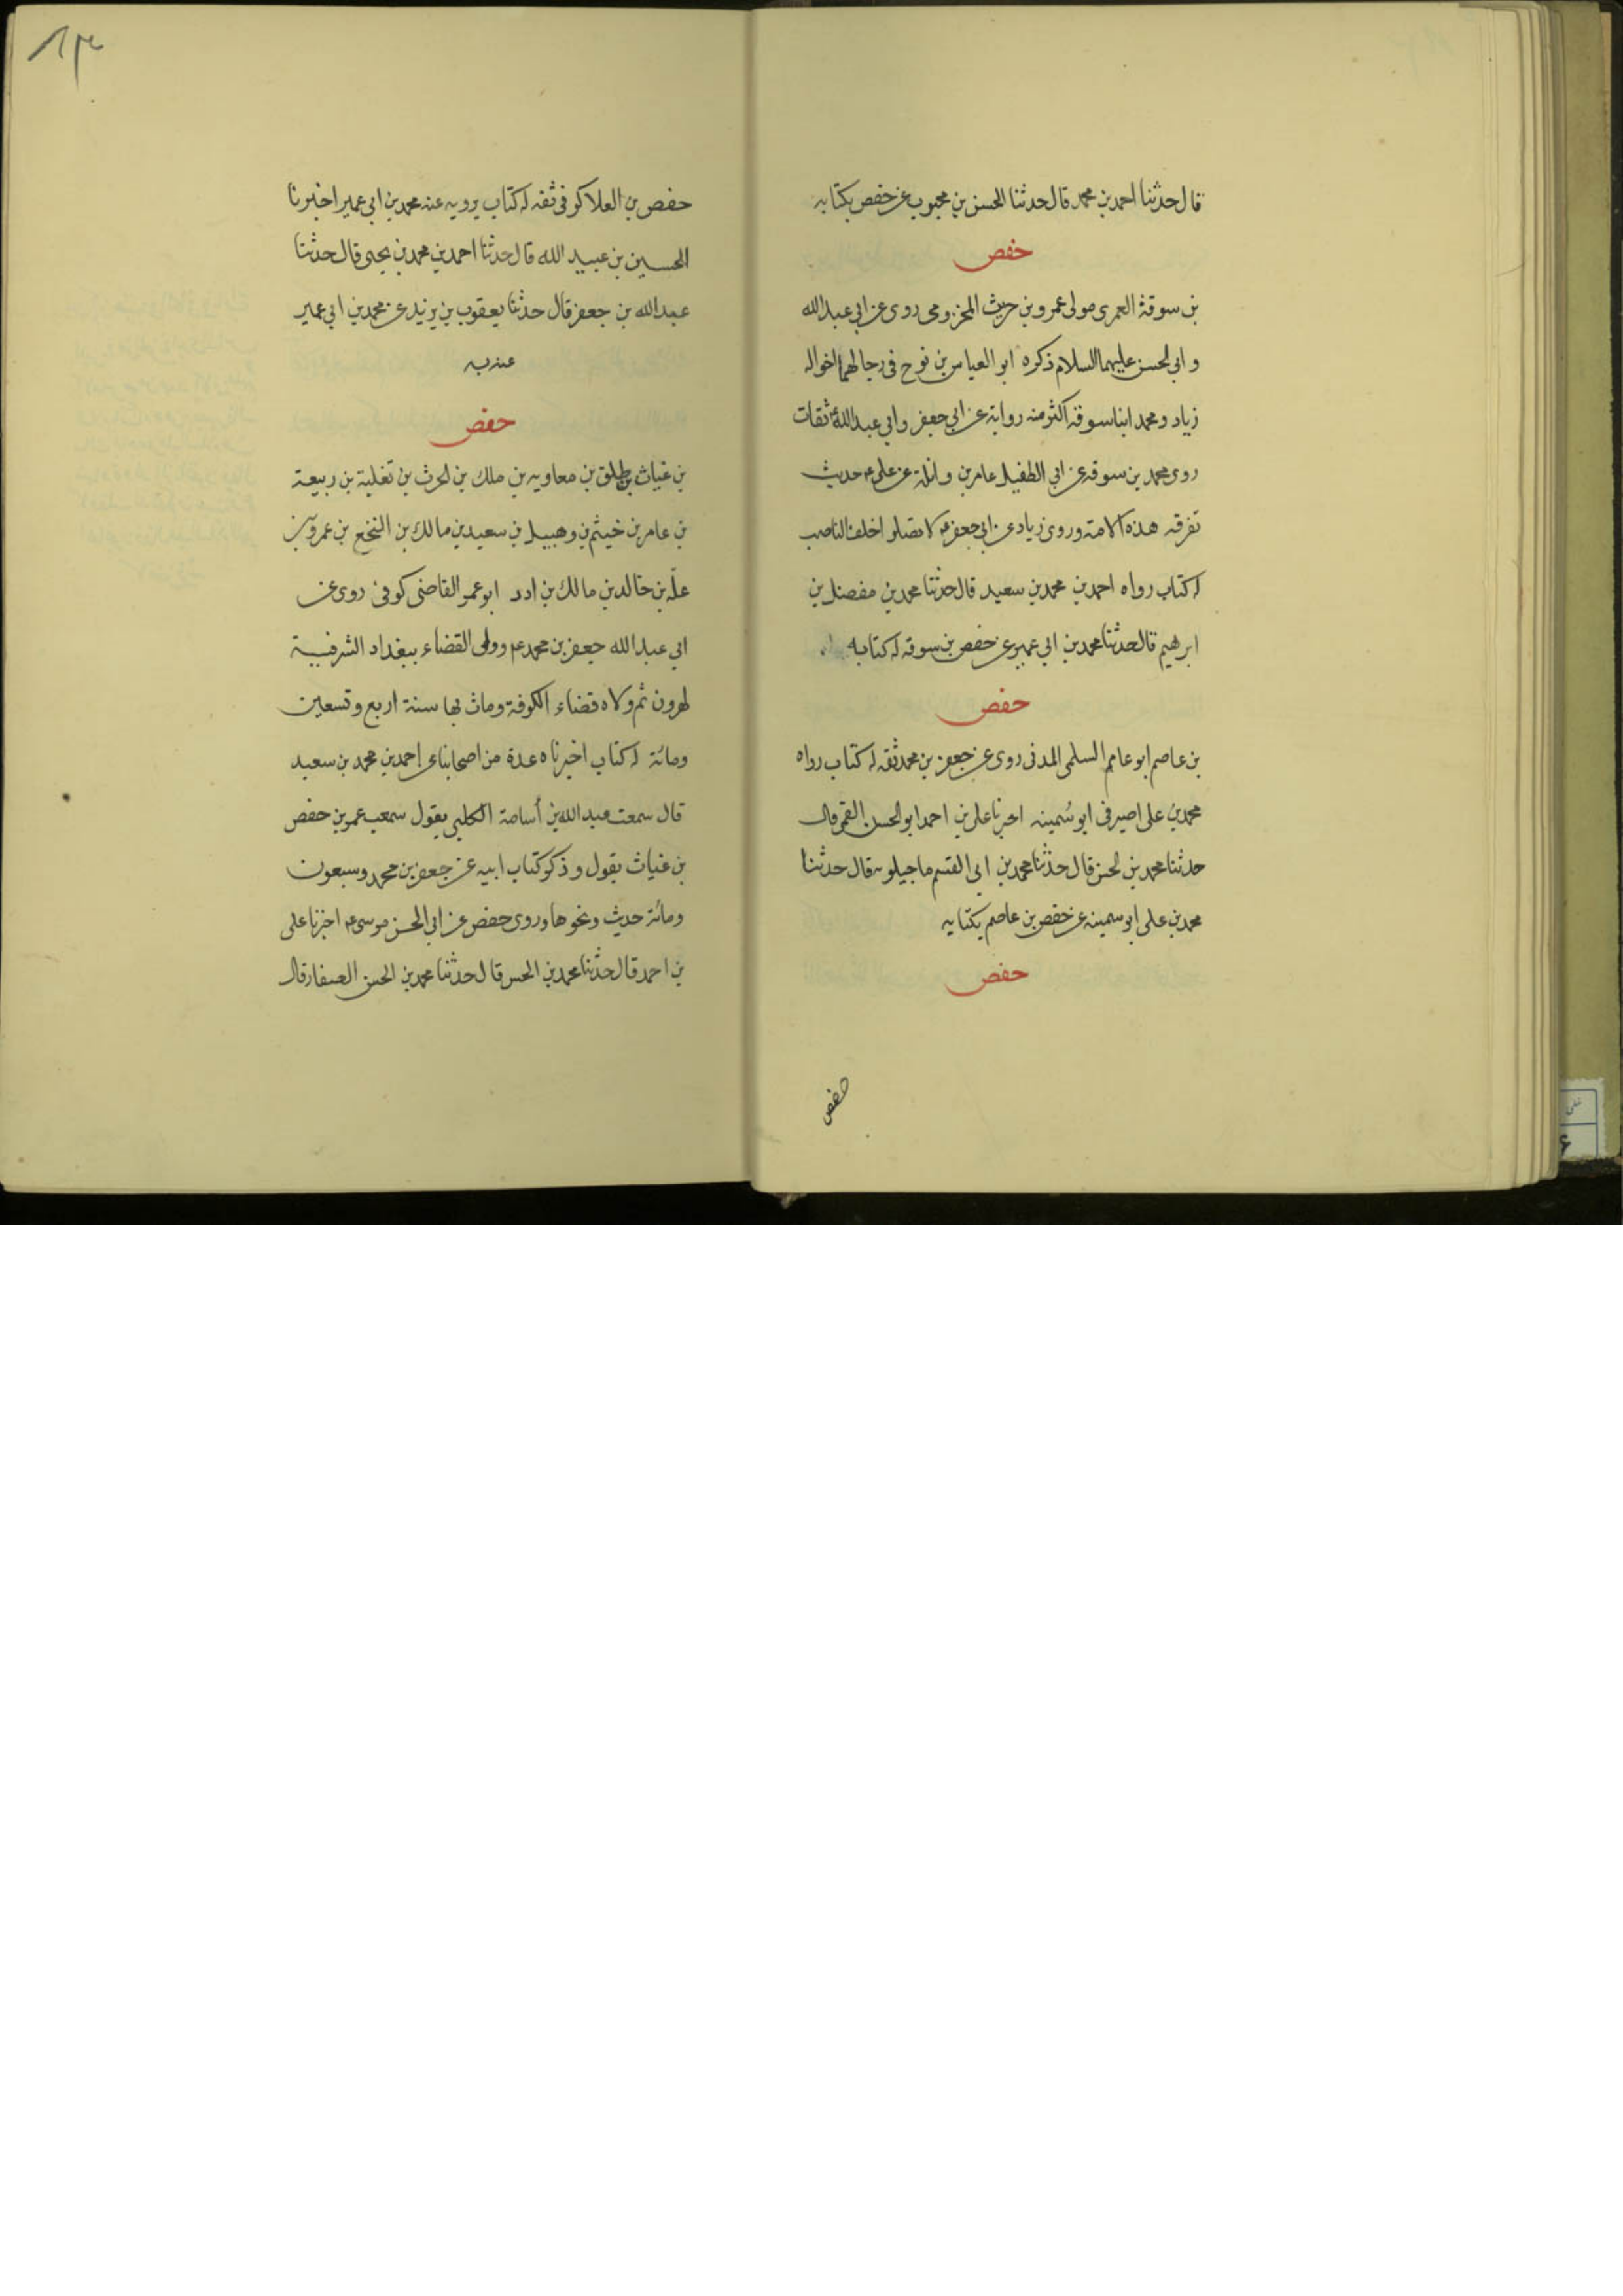 قال حدثنا احمد بن محمد قال حدثنا الحسن بن محبوب عن حفص بكتابه
حفص
بن سوقة العمرى مولى عمرو بن حريث المخزومى روى عن ابى عبدالله
وابى الحسن عليهما السلام ذكره ابو العباس بن نوح فى رجالهما اخواه
زياد ومحمد ابنا سوقه اكثر منه رواية عن ابى جعفر وابى عبدالله ثقات
روى محمد بن سوقه عن ابى الطفيل عامر بن واثلة عن على ع حديث
تفرقه هذه الامة وروى زياد عن ابى جعفر ع لا تصلو اخلف الناصب
له كتاب رواه احمد بن محمد بن سعيد قال حدثنا محمد بن مفضل بن
ابرهيم قال حدثنا محمد بن ابى عمير عن حفص بن سوقه له كتابه
حفص
بن عاصم ابو عاصم السلمى المدنى روى عن جعفر بن محمد ثقه له كتاب رواه
محمد بن على اصيرفى ابو سُمينه اخبرنا على بن احمد ابو الحسن القمى قال
حدثنا محمد بن الحسن قال حدثنا محمد بن ابى القسم ماجيلويه قال حدثنا
محمد بن على ابو سمينه عن حفص بن عاصم بكتابه
حفص
حفص
٨٣
حفص بن العلا كوفى ثقه له كتاب يرويه عنه محمد بن ابى عمير اخبرنا
الحسين بن عبيد الله قال حدثنا احمد بن محمد بن يحيى قال حدثنا
عبدالله بن جعفر قال حدثنا يعقوب بن يزيد عن محمد بن ابى عمير
عنه به
حفص
بن غياث بن طلق بن معاويه بن ملك بن الحرث بن ثعلبة بن ربيعة
بن عامر بن خيثم بن وهبيل بن سعيد بن مالك بن النخع بن عمرو بن
علّه بن خالد بن مالك بن ادد ابو عمر القاضى كوفى روى عن
ابى عبدالله جعفر بن محمد ع وولى القضاء ببغداد الشرقية
لهرون ثم ولاه قضاء الكوفة ومات بها سنة اربع وتسعين
ومائة له كتاب اخبرناه عدة من اصحابنا عن احمد بن محمد بن سعيد
قال سمعت عبدالله بن أسامة الكلبى يقول سمعت عمر بن حفص
بن غياث يقول وذكر كتاب ابيه عن جعفر بن محمد وسبعون
ومائة حديث ونحوها وروى حفص عن ابى الحسن موسى ع اخبرنا على
بن احمد قال حدثنا محمد بن الحسن قال حدثنا محمد بن الحسن الصفار قال